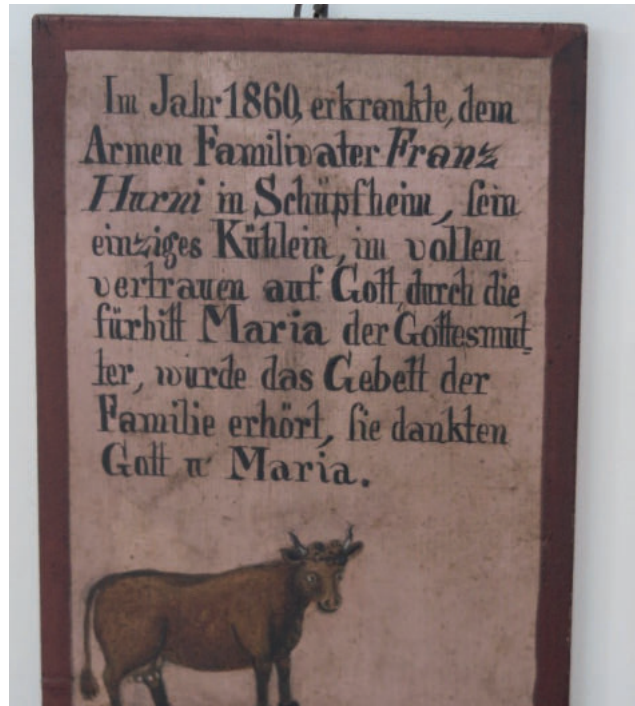 Im Jahr 1860, erkrankte, dem
Armen Familivater Franz
Hurni in Schüpfheim, sein
einziges Kühlein, im vollen
vertrauen auf Gott, durch die
fürbitt Maria der Gottesmut_
ter, wurde das Gebett der
Familie erhört, sie dankten
Gott u Maria.